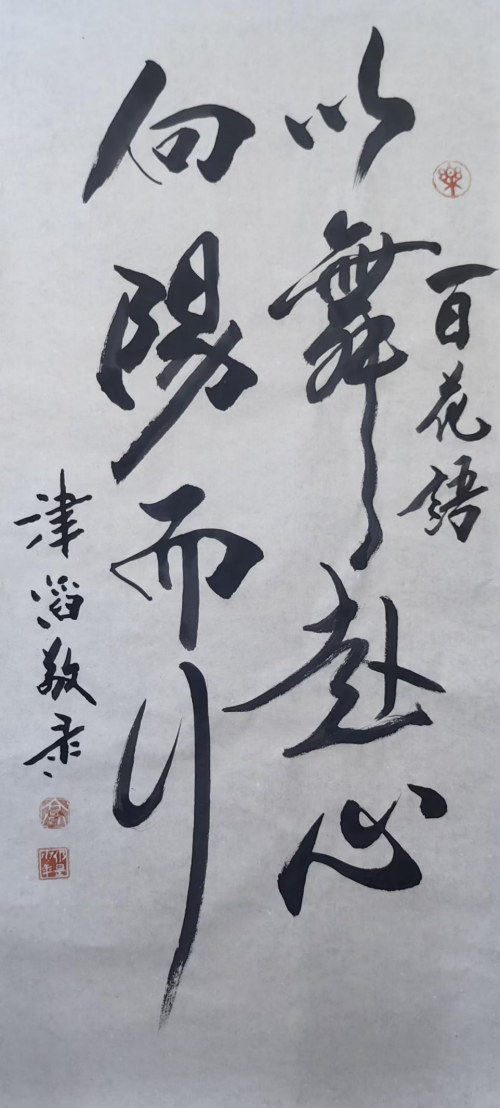 百花語
以舞赴心
向陽而行
津滔敬录